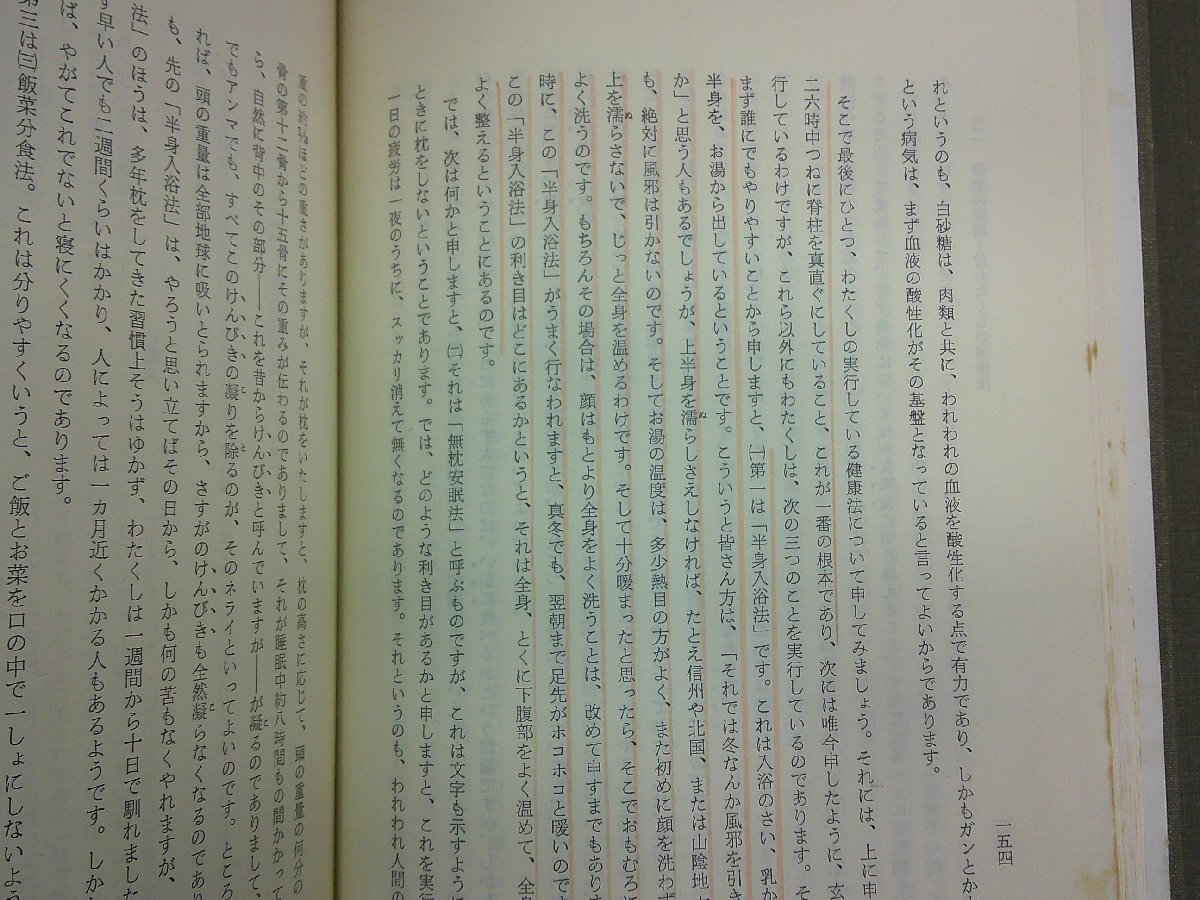 れというのも、白砂糖は、肉類と共に、われわれの血液を酸性化する点で有力であり、しかもガンとか
という病気は、まず血液の酸性化がその基盤となっていると言ってよいからであります。
そこで最後にひとつ、わたくしの実行している健康法について申してみましょう。それには、上に申
二六時中つねに脊柱を真直ぐにしていること、これが一番の根本であり、次には唯今申したように、玄
行しているわけですが、これら以外にもわたくしは、次の三つのことを実行しているのであります。そ
まず誰にでもやりやすいことから申しますと、㈠第一は「半身入浴法」です。これは入浴のさい、乳か
半身を、お湯から出しているということです。こういうと皆さん方は、「それでは冬なんか風邪を引き
か」と思う人もあるでしょうが、上半身を濡らしさえしなければ、たとえ信州や北国、または山陰地
も、絶対に風邪は引かないのです。そしてお湯の温度は、多少熱目の方がよく、また初めに顔を洗わず
上を濡らさないで、じっと全身を温めるわけです。そして十分暖まったと思ったら、そこでおもむろに
よく洗うのです。もちろんその場合は、顔はもとより全身をよく洗うことは、改めて申すまでもあり
時に、この「半身入浴法」がうまく行なわれますと、真冬でも、翌朝まで足先がホコホコと暖いので
この「半身入浴法」の利き目はどこにあるかというと、それは全身、とくに下腹部をよく温めて、全身
よく整えるということにあるのです。
では、次は何かと申しますと、㈡それは「無枕安眠法」と呼ぶものですが、これは文字も示すように
ときに枕をしないということであります。では、どのような利き目があるかと申しますと、これを実行
一日の疲労は一夜のうちに、スッカリ消えて無くなるのであります。それというのも、われわれ人間の
一五四
重の約⅙ほどの重さがありますが、それが枕をいたしますと、枕の高さに応じて、頭の重量の何分の
骨の第十二骨から十五骨にその重みが伝わるのでありまして、それが睡眠中約八時間もの間かかって
ら、自然に背中のその部分――これを昔からけんびきと呼んでいますが――が凝るのでありまして、
でもアンマでも、すべてこのけんびきの凝りを除るのが、そのネライといってよいのです。ところ
れば、頭の重量は全部地球に吸いとられますから、さすがのけんびきも全然凝らなくなるのであり
も、先の「半身入浴法」は、やろうと思い立てばその日から、しかも何の苦もなくやれますが、
法」のほうは、多年枕をしてきた習慣上そうはゆかず、わたくしは一週間から十日で馴れました
す早い人でも二週間くらいはかかり、人によっては一カ月近くかかる人もあるようです。しか
ば、やがてこれでないと寝にくくなるのであります。
第三は㈢飯菜分食法。これは分りやすくいうと、ご飯とお菜を口の中で一しょにしないよう